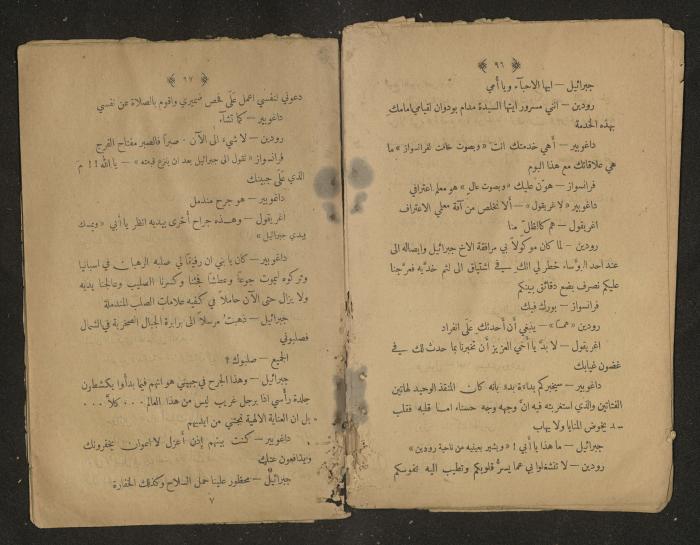 ﴿ ٩٦ ﴾
جبرائيل — ايها الاحبآء ويا أمي
رودين — انني مسرور ايتها السيدة مدام بودوان لقيامي امامك
بهذه الخدمة
داغوبير — أهي خدمتك انت «وبصوت خافت لفرانسواز» ما
هي علاقاتك مع هذا اليوم
فرانسواز — هوّن عليك «وبصوت عالٍ» هو معلم اعترافي
داغوبير «لاغريقول» — ألا نخلص من آفة معلمي الاعتراف
اغريقول — هم كالظلّ منا
رودين — لما كان موكولاً بي مرافقة الاخ جبرائيل وايصاله الى
عند احد الروساء خطر لي انك في اشتياق الى لثم خديه فعرّجنا
عليكم نصرف بضع دقائق بينكم
فرانسواز — بورك فيك
رودين «همساً» — ينبغي أن أحدثك على انفراد
اغريقول — لا بدَّ يا أخي العزيز أن تخبرنا بما حدث لك في
غضون غيابك
داغوبير — سيخبركم بداءة بدء بانه كان المنقذ الوحيد لهاتين
الفتاتين والذي استغربته فيه انَّ وجهه وجه حسناء اما قلبه فقلب
يخوض المنايا ولا يهاب
جبرائيل — ما هذا يا أبي ! «ويشير بعينيه من ناحية رودين»
رودين — لا تشغلوا بي عما يسرُّ قلوبكم وتطيب اليه نفوسكم
﴿ ٩٧ ﴾
دعوني لنفسي اعمل على فحص ضميري واقوم بالصلاة عن نفسي
داغوبير — كما تشاء
رودين — لا شيء الى الآن . صبراً فالصبر مفتاح الفرج
فرانسواز «تقول الى جبرائيل بعد ان ينزع قبعته» — يا الله !! مَ
الذي على جبينك
داغوبير — هو جرح مندمل
اغريقول — وهذه جراح أخرى بيديه انظر يا أبي «ويمسك
بيدي جبرائيل»
داغوبير — كان يا بني ان رفيقاً لي صلبه الرهبان في اسبانيا
وتركوه ليموت جوعاً وعطشاً فجئنا وكسرنا الصليب وعالجنا يديه
ولا يزال حتى الآن حاملاً في كفيه علامات الصلب المندملة
جبرائيل — ذهبت مرسلاً الى برابرة الجبال الصخرية في الشمال
فصلبوني
الجميع — صلبوك ؟
جبرائيل — وهذا الجرح في جبهتي هو انهم فيما بدأوا يكشطون
جلدة رأسي اذا برجل غريب ليس من هذا العالم . . . كلاَّ . . .
بل ان العناية الالهية تمجني من ايديهم
داغوبير — كنت بينهم إذن أعزل لا اعوان يخفرونك
ويدافعون عنك
جبرائيل — محظور علينا حمل السلاح وكذلك الخفارة
٧